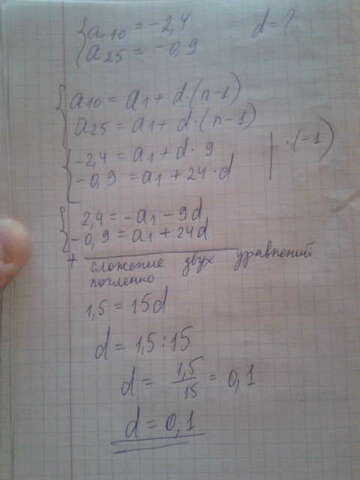 { a10 = -2,4 d = ?
a25 = -0,9
{ a10 = a1 + d·(n-1)
a25 = a1 + d·(n-1)
{ -2,4 = a1 + d·9 | ·(-1)
-0,9 = a1 + 24·d
{ 2,4 = -a1 - 9d
-0,9 = a1 + 24d
+ сложение двух уравнений
почленно
1,5 = 15d
d = 1,5:15
d = 1,5/15 = 0,1
d = 0,1